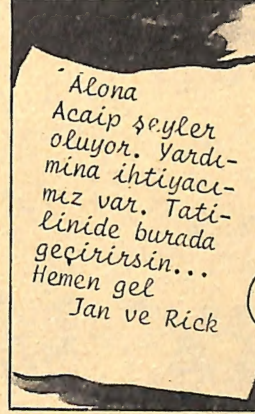 Alona
Acaip şeyler
oluyor. Yardı-
mina ihtiyacı-
mız var. Tati-
linide burada
geçirirsin...
Hemen gel
Jan ve Rick